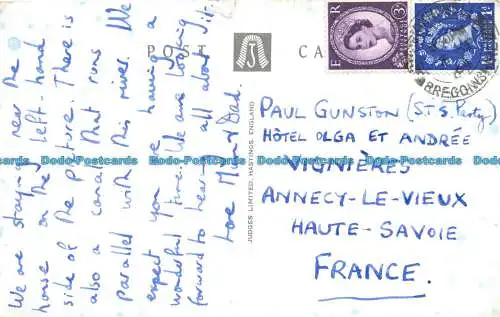 POST CA
We are staying near the
house on the left-hand
side of the picture. There is
also a canal that runs
parallel with this river. We
expect you are having a
wonderful time. We are looking
forward to hearing all about it.
Love Mum & Dad.
JUDGES LIMITED, HASTINGS, ENGLAND
E R
3D
BRECON
PAUL GUNSTON (S.T.S. Party)
HÔTEL OLGA ET ANDRÉE
VIGNIÈRES
ANNECY-LE-VIEUX
HAUTE-SAVOIE
FRANCE.
Dodo-Postcards Dodo-Postcards Dodo-Postcards Dodo-Postcards Dodo-Postcards